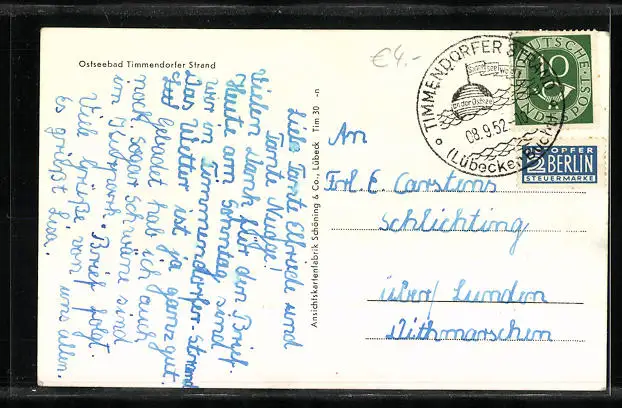 Ostseebad Timmendorfer Strand
Liebe Tante Elfriede und
Tante
Vielen Dank für den Brief.
Heute am Sonntag sind
wir in Timmendorfer-Strand
Das Wetter ist ja ganz gut.
gebadet hab ich auch
noch. Sogar Schwäne sind
im Brief folgt.
Viele Grüße von uns allen.
Es grüßt
Ansichtskartenfabrik Schöning & Co., Lübeck Tim 30 -n
€4.-
TIMMENDORFER STRAND
an der Ostsee
08.9.52
(Lübecker Bucht)
DEUTSCHE POST
10
NOTOPFER
2 BERLIN
STEUERMARKE
An
Frl. E. Carstens
Schlichting
über/ Lunden
Dithmarschen